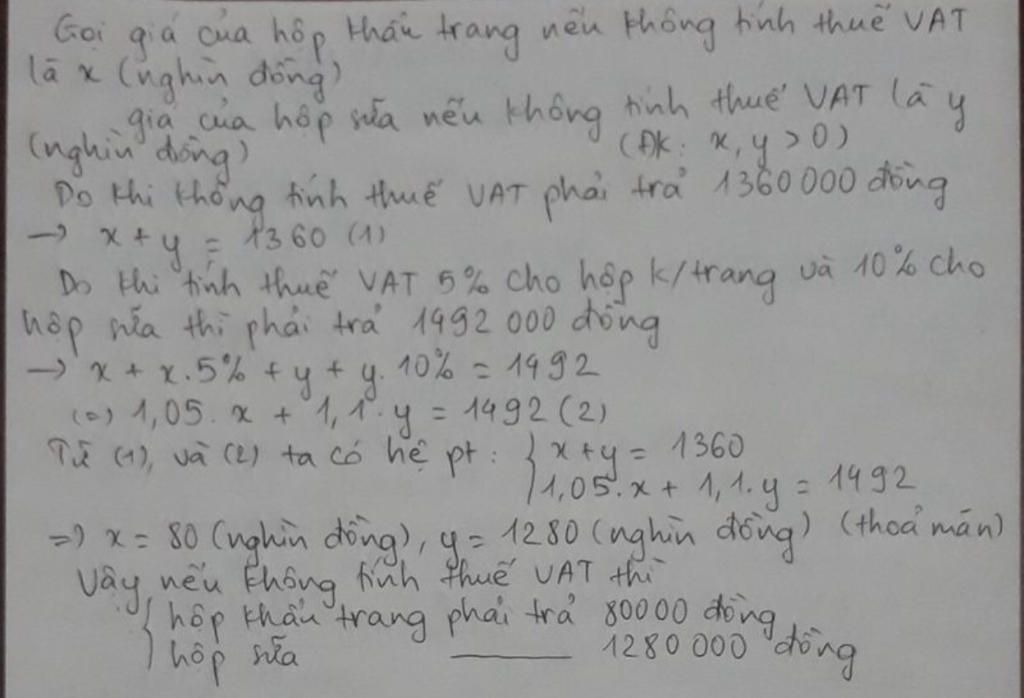 Gọi giá của hộp khẩu trang nếu không tính thuế VAT
là x (nghìn đồng)
giá của hộp sữa nếu không tính thuế VAT là y
(nghìn đồng) (ĐK: x, y > 0)
Do khi không tính thuế VAT phải trả 1360000 đồng
→ x + y = 1360 (1)
Do khi tính thuế VAT 5% cho hộp k/trang và 10% cho
hộp sữa thì phải trả 1492 000 đồng
→ x + x.5% + y + y.10% = 1492
(=) 1,05. x + 1,1. y = 1492 (2)
Từ (1), và (2) ta có hệ pt: { x+y = 1360
1,05.x + 1,1.y = 1492
=) x = 80 (nghìn đồng), y = 1280 (nghìn đồng) (thoả mãn)
Vậy nếu không tính thuế VAT thì
{ hộp khẩu trang phải trả 80000 đồng
hộp sữa —— 1280 000 đồng